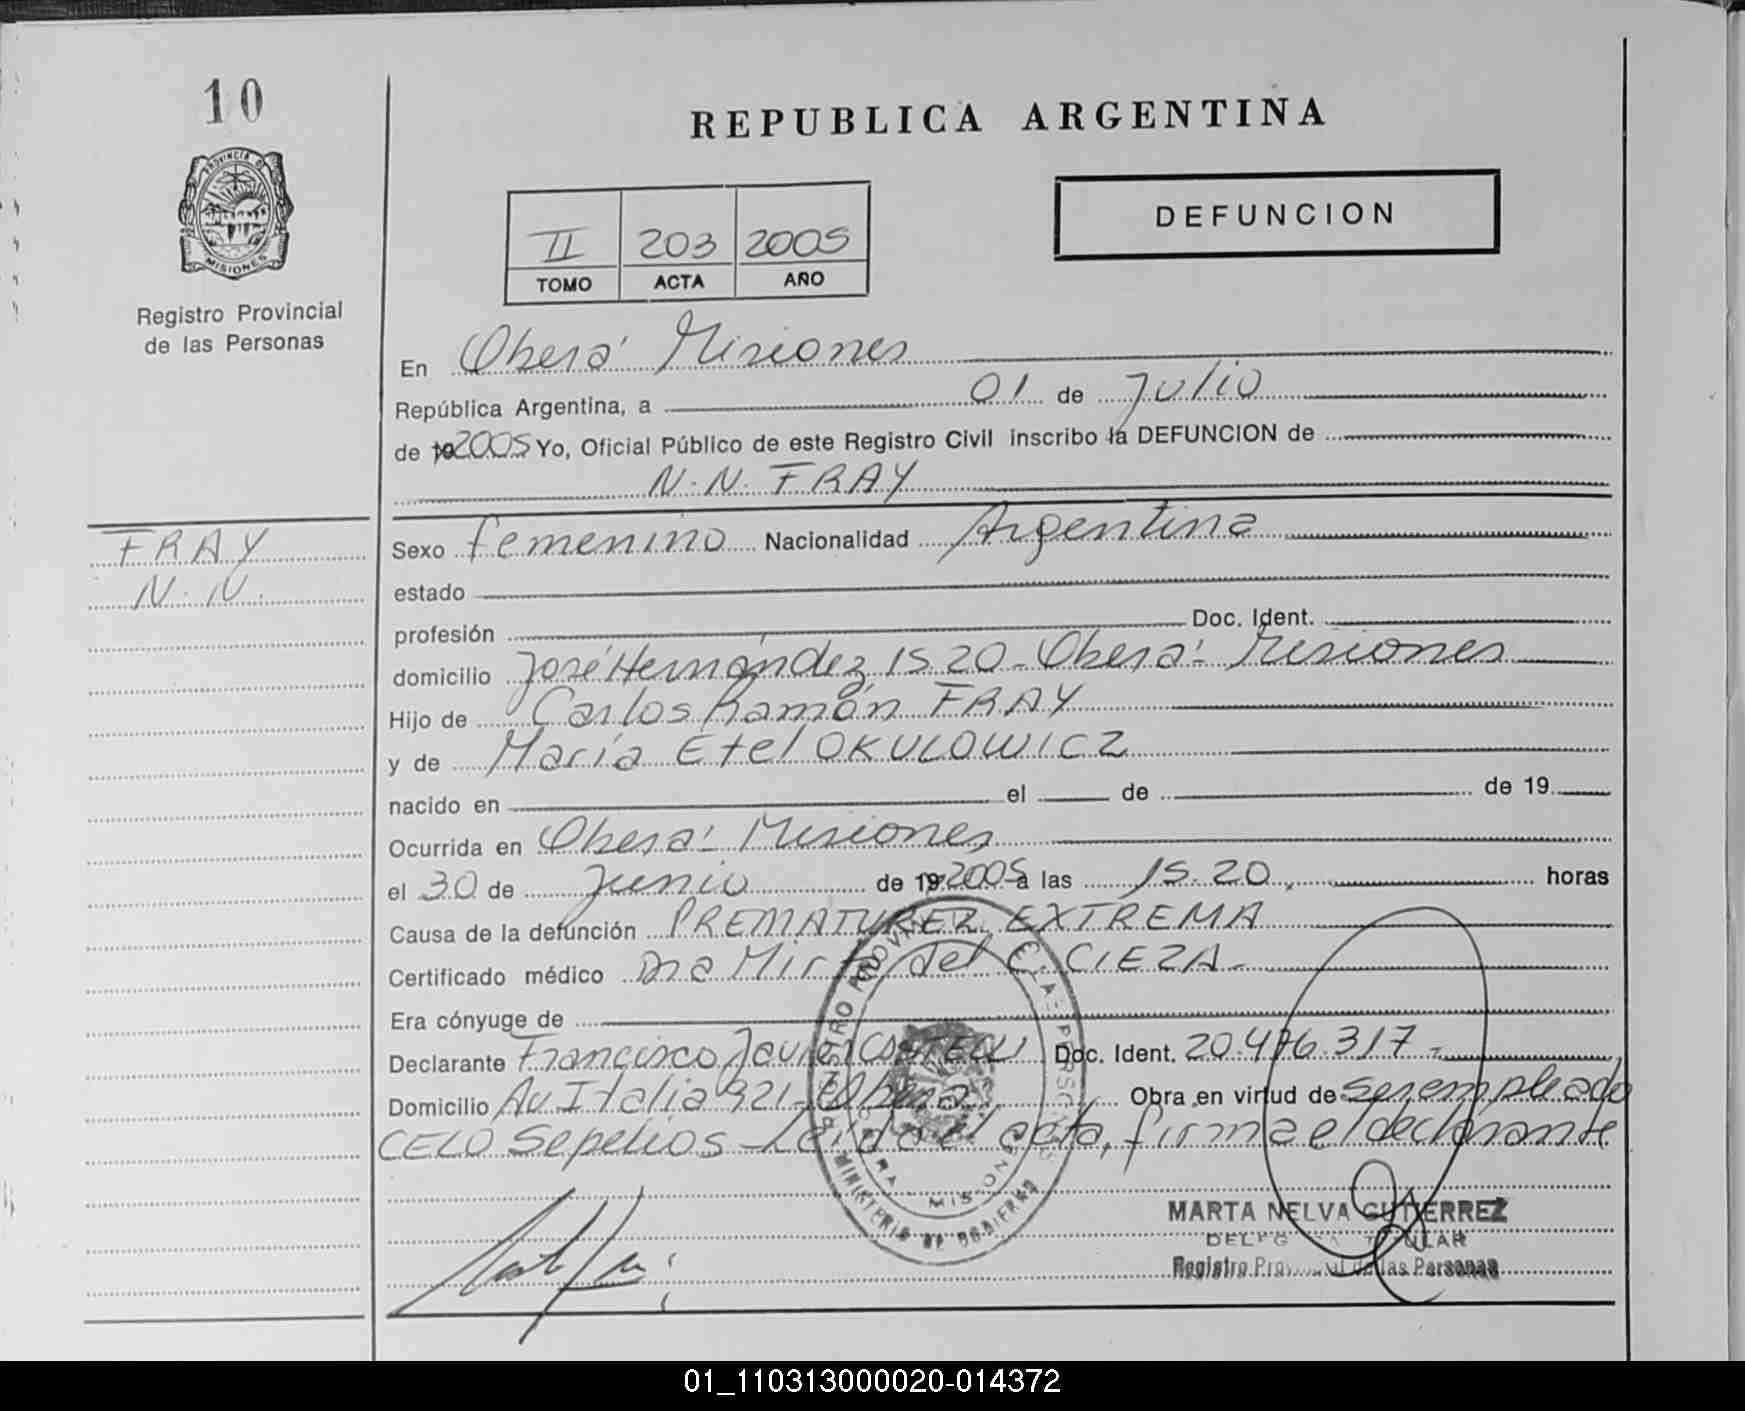 10
REPUBLICA ARGENTINA
PROVINCIA DE
MISIONES
Registro Provincial
de las Personas
DEFUNCION
II 203 2005
TOMO ACTA AÑO
En Oberá Misiones
República Argentina, a 01 de Julio
de 19 2005 Yo, Oficial Público de este Registro Civil inscribo la DEFUNCION de
N.N. FRAY
FRAY
N.N.
Sexo femenino Nacionalidad Argentina
estado
profesión Doc. Ident.
domicilio José Hernández 1520 - Oberá - Misiones
Hijo de Carlos Ramón FRAY
y de María Etel OKULOWICZ
nacido en el de de 19
Ocurrida en Oberá - Misiones
el 30 de Junio de 19 2005 a las 15.20 horas
Causa de la defunción PREMATUREZ EXTREMA
Certificado médico Dra Mirta del C. CIEZA -
Era cónyuge de
Declarante Francisco Javier Doc. Ident. 20.476.317 -
Domicilio Av Italia 921 - Oberá Obra en virtud de ser empleado
CELO Sepelios - Leída el acta, firma el declarante
MINISTERIO DE GOBIERNO
OBERA MISIONES
MARTA NELVA GUTIERREZ
DELEGADA TITULAR
Registro Provincial de las Personas
01_110313000020-014372